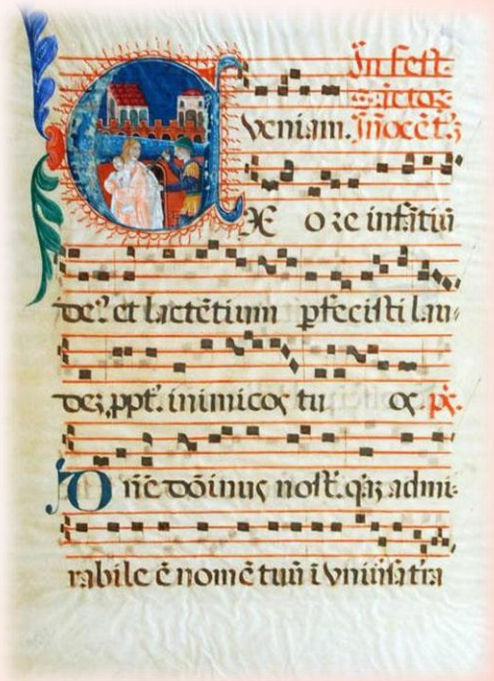 In fest.
sāctoꝝ
veniam. Inocētꝫ
EX ore infātiū
deꝰ et lactētium ꝑfecisti lau-
deꝫ, ꝓpt. inimicos tuos. ps.
Dn̄e dōinus nost̄. q̄ꝫ admi-
rabile ē nomē tuū ī vniūsa t̄ra